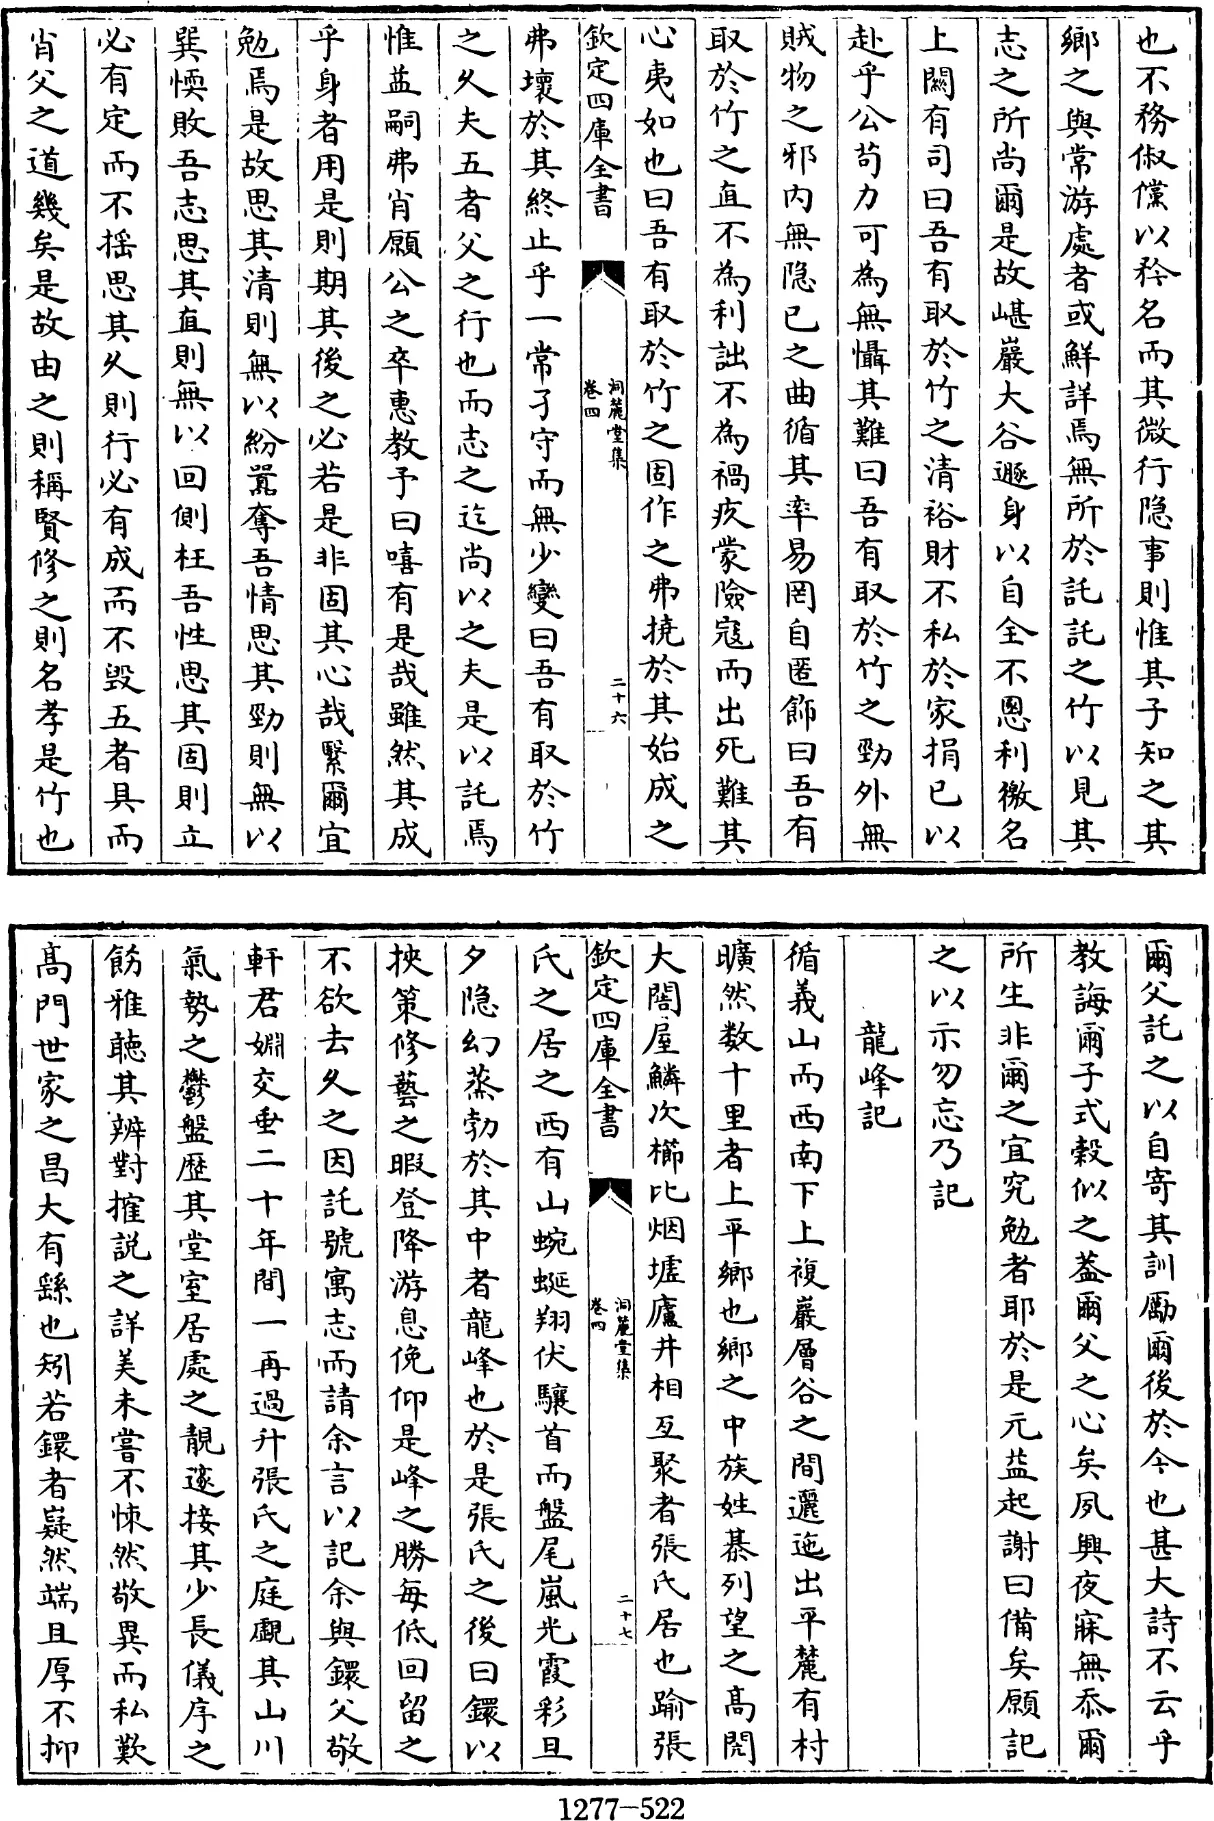 也不務俶儻以矜名而其微行隐事則惟其子知之其
鄉之與常游處者或鮮詳焉無所於託託之竹以見其
志之所尚爾是故嵁巖大谷遯身以自全不恩利徼名
上闕有司曰吾有取於竹之清裕財不私於家捐已以
赴乎公苟力可為無懾其難曰吾有取於竹之勁外無
賊物之邪内無隐已之曲循其率易罔自匿飾曰吾有
取於竹之直不為利詘不為禍疚蒙險冦而出死難其
心夷如也曰吾有取於竹之固作之弗撓於其始成之
欽定四庫全書
洞麓堂集
卷四
二十六
弗壞於其終止乎一常孑守而無少變曰吾有取於竹
之久夫五者父之行也而志之迄尚以之夫是以託焉
惟益嗣弗肖願公之卒惠教予曰嘻有是哉雖然其成
乎身者用是則期其後之必若是非固其心哉緊爾宜
勉焉是故思其清則無以紛囂奪吾情思其勁則無以
巽愞敗吾志思其直則無以回側枉吾性思其固則立
必有定而不揺思其久則行必有成而不毀五者具而
肖父之道幾矣是故由之則稱賢修之則名孝是竹也
爾父託之以自寄其訓勵爾後於今也甚大詩不云乎
教誨爾子式穀似之葢爾父之心矣夙興夜寐無忝爾
所生非爾之宜究勉者耶於是元益起謝曰備矣願記
之以示勿忘乃記
龍峰記
循義山而西南下上複巖層谷之間邐迤出平麓有村
曠然数十里者上平鄉也鄉之中族姓綦列望之高閎
大闊屋鱗次櫛比烟墟廬井相互聚者張氏居也踰張
欽定四庫全書
洞麓堂集
卷四
二十七
氏之居之西有山蜿蜒翔伏驤首而盤尾嵐光霞彩旦
夕隐幻蒸勃於其中者龍峰也於是張氏之後曰鐶以
挾策修藝之暇登降游息俛仰是峰之勝每低回留之
不欲去久之因託號寓志而請余言以記余與鐶父敬
軒君婣交垂二十年間一再過升張氏之庭覩其山川
氣勢之鬱盤歴其堂室居處之靚邃接其少長儀序之
飭雅聴其辨對搉説之詳美未嘗不悚然敬異而私歎
髙門世家之昌大有繇也矧若鐶者嶷然端且厚不抑
1277-522